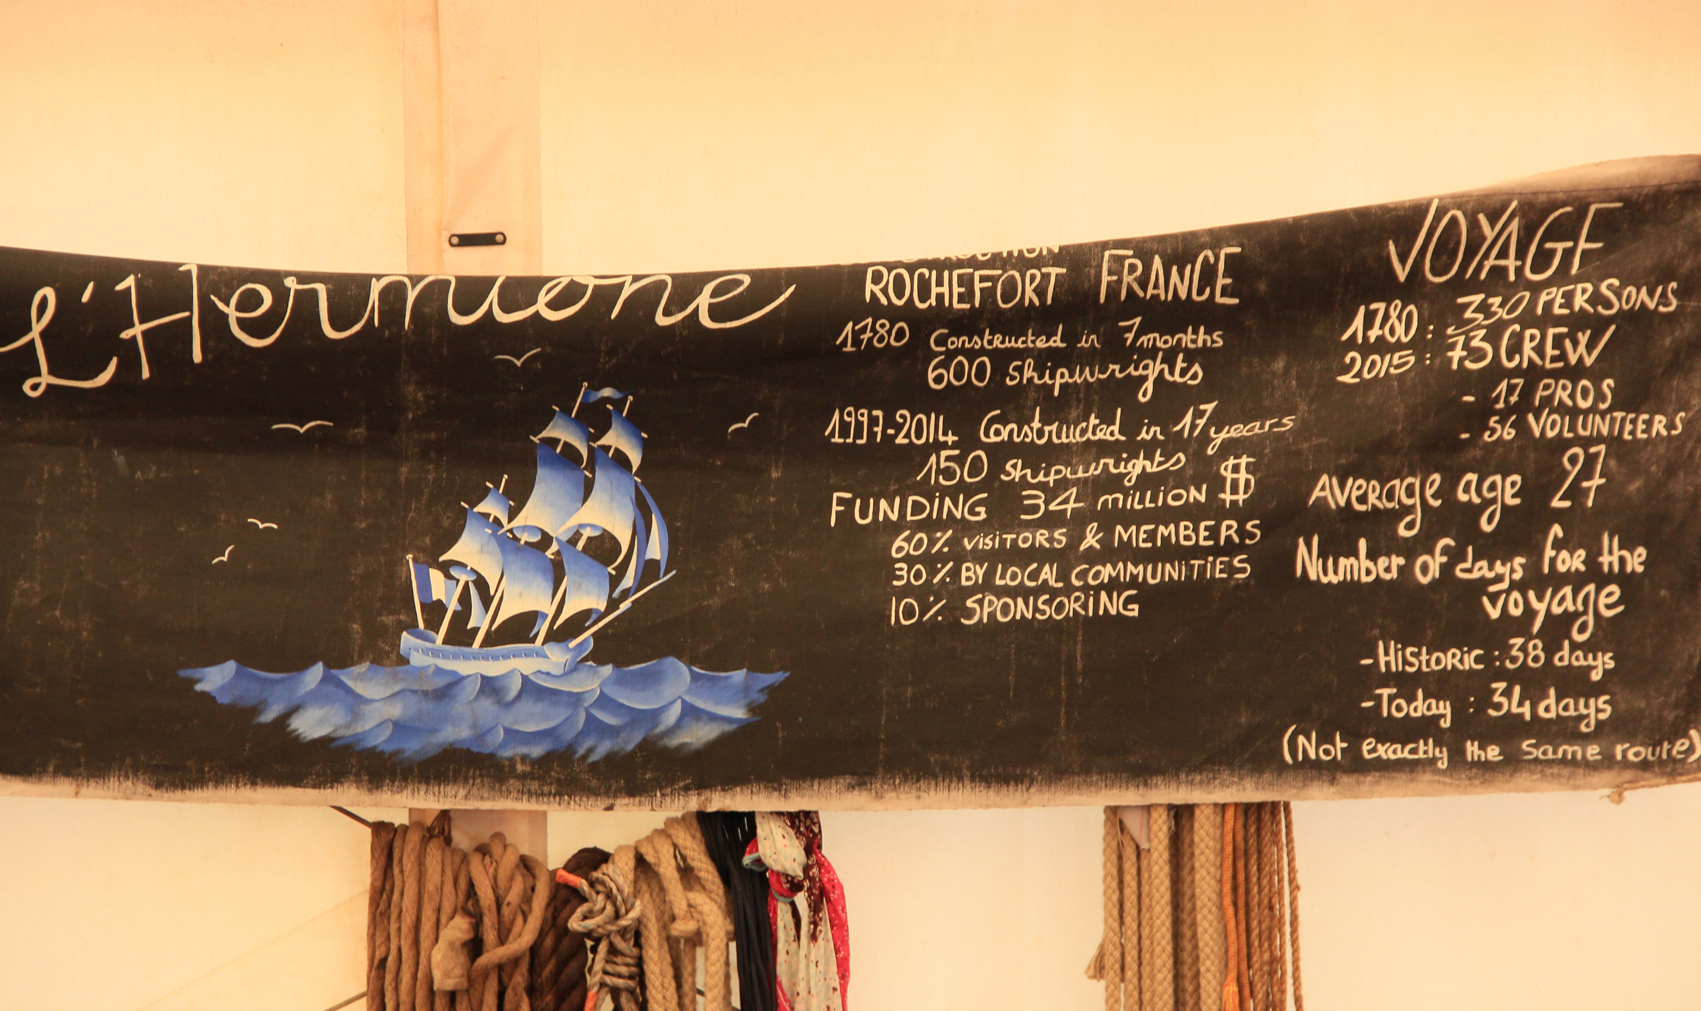 L'Hermione
ROCHEFORT FRANCE
1780 Constructed in 7 months
600 shipwrights
1997-2014 Constructed in 17 years
150 shipwrights
FUNDING 34 MILLION $
60% VISITORS & MEMBERS
30% BY LOCAL COMMUNITIES
10% SPONSORING
VOYAGE
1780: 330 PERSONS
2015: 73 CREW
- 17 PROS
- 56 VOLUNTEERS
Average age 27
Number of days for the
voyage
- Historic: 38 days
- Today: 34 days
(Not exactly the same route)